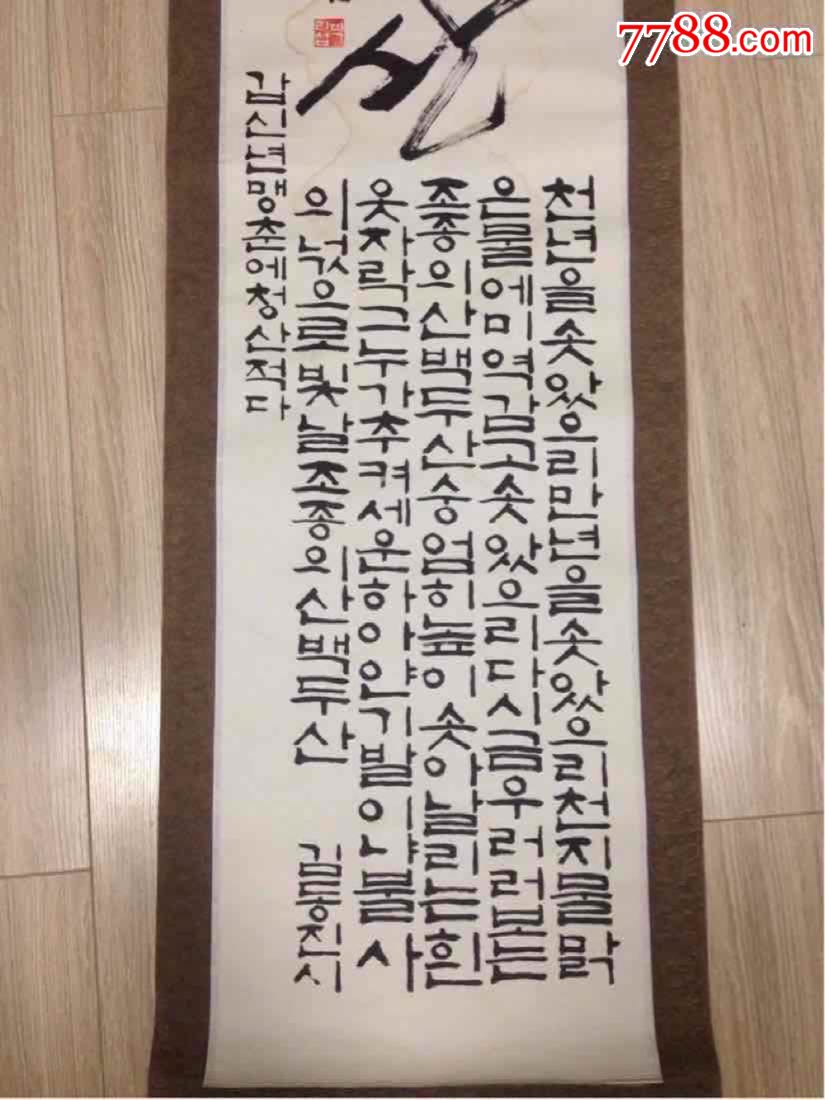 7788.com
천년을솟았으리만년을솟았으리천지물맑
은물에미역감고솟았으리다시금우러러보는
조종의산백두산숭엄히높이솟아날리는흰
옷자락그누가추켜세운하이얀기발이냐불사
의넋으로빛날조종의산백두산 김동진시
갑신년맹춘에청산적다